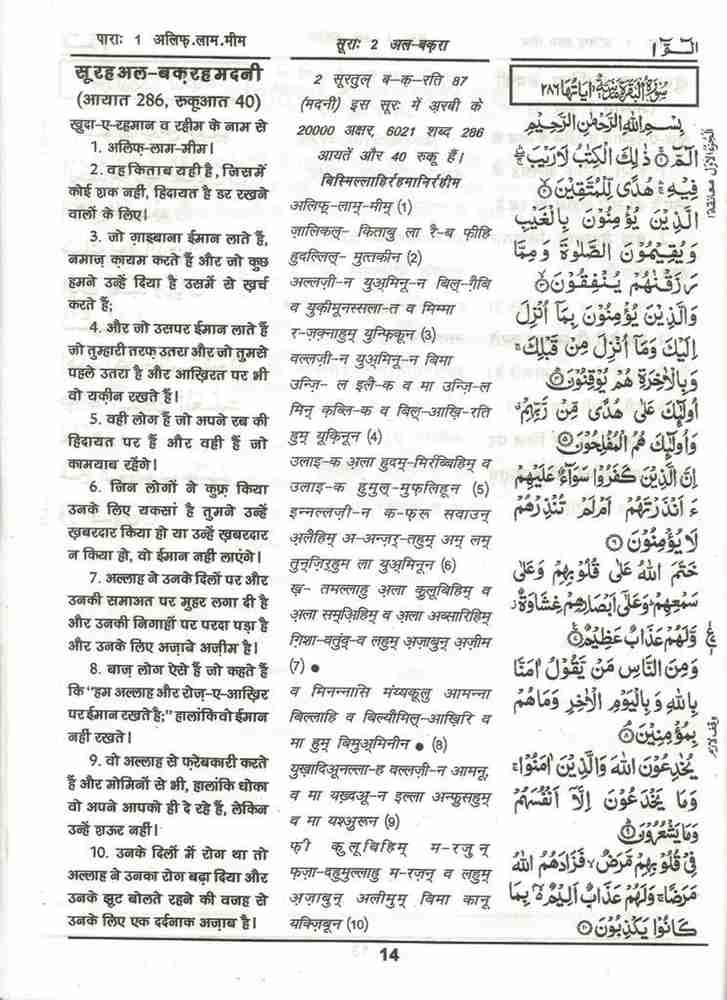 पाराः 1 अलिफ़.लाम.मीम
सूराः 2 अल-बक़रा
الٓـمّٓ ١
सूरह अल-बक़रह मदनी
(आयात 286, रुकूआत 40)
ख़ुदा-ए-रहमान व रहीम के नाम से
1. अलिफ़-लाम-मीम।
2. वह किताब यही है, जिसमें
कोई शक नहीं, हिदायत है डर रखने
वालों के लिए।
3. जो ग़ाइबाना ईमान लाते हैं,
नमाज़ क़ायम करते हैं और जो कुछ
हमने उन्हें दिया है उसमें से ख़र्च
करते हैं;
4. और जो उसपर ईमान लाते हैं
जो तुम्हारी तरफ़ उतरा और जो तुमसे
पहले उतरा है और आख़िरत पर भी
वो यक़ीन रखते हैं।
5. वही लोग हैं जो अपने रब की
हिदायत पर हैं और वही हैं जो
कामयाब रहेंगे।
6. जिन लोगों ने कुफ़्र किया
उनके लिए यकसां है तुमने उन्हें
ख़बरदार किया हो या उन्हें ख़बरदार
न किया हो, वो ईमान नहीं लाएंगे।
7. अल्लाह ने उनके दिलों पर और
उनकी समाअत पर मुहर लगा दी है
और उनकी निगाहों पर परदा पड़ा है
और उनके लिए अज़ाबे अज़ीम है।
8. बाज़ लोग ऐसे हैं जो कहते हैं
कि "हम अल्लाह और रोज़-ए-आख़िर
पर ईमान रखते है;" हालांकि वो ईमान
नहीं रखते।
9. वो अल्लाह से फ़रेबकारी करते
हैं और मोमिनों से भी, हालांकि धोका
वो अपने आपको ही दे रहे हैं, लेकिन
उन्हें शऊर नहीं।
10. उनके दिलों में रोग था तो
अल्लाह ने उनका रोग बढ़ा दिया और
उनके झूट बोलते रहने की वजह से
उनके लिए एक दर्दनाक अज़ाब है।
2 सूरतुल् ब-क़-रति 87
(मदनी) इस सूरः में अ़रबी के
20000 अक्षर, 6021 शब्द 286
आयतें और 40 रुकू हैं।
बिस्मिल्लाहिर्रहमानिर्रहीम
अलिफ़्-लाम्-मीम् (1)
ज़ालिकल्- किताबु ला रै-ब फ़ीहि
हुदल्लिल्- मुत्तक़ीन (2)
अल्लज़ी-न युअ्मिनू-न बिल्-ग़ैबि
व युक़ीमूनस्सला-त व मिम्मा
र-ज़क़्नाहुम् युन्फ़िक़ून (3)
वल्लज़ी-न युअ्मिनू-न बिमा
उन्ज़ि- ल इलै-क व मा उन्ज़ि-ल
मिन् क़ब्लि-क व बिल्-आख़ि-रति
हुम् यूक़िनून (4)
उलाइ-क अ़ला हुदम्-मिर्रब्बिहिम् व
उलाइ-क हुमुल्-मुफ़लिहून (5)
इन्नल्लज़ी-न क-फ़रू सवाउन्
अ़लैहिम् अ-अन्ज़र्-तहुम् अम् लम्
तुन्ज़िर्हुम ला युअ्मिनून (6)
ख़- तमल्लाहु अ़ला क़ुलूबिहिम् व
अ़ला समूअ़िहिम् व अ़ला अब्सारिहिम्
ग़िशा-वतुंव्-व लहुम् अ़ज़ाबुन् अ़ज़ीम
(7) ●
व मिनन्नासि मंय्यक़ूलु आमन्ना
बिल्लाहि व बिल्यौमिल्-आख़िरि व
मा हुम् बिमुअ्मिनीन ● (8)
युख़ादिअूनल्ला-ह वल्लज़ी-न आमनू,
व मा यख़्दअू-न इल्ला अन्फ़ुसहुम्
व मा यश्अुरून (9)
फ़ी क़ुलूबिहिम् म-रजुन्
फ़ज़ा-दहुमुल्लाहु म-रज़न् व लहुम्
अ़ज़ाबुन् अलीमुम् बिमा कानू
यक्ज़िबून (10)
سُوْرَةُ الْبَقَرَةِ مَدَنِيَّةٌ اٰيَاتُهَا ٢٨٦
بِسْمِ اللّٰهِ الرَّحْمٰنِ الرَّحِيْمِ
الٓمّٓ ۚ ذٰلِكَ الْكِتٰبُ لَا رَيْبَ ۛ
فِيْهِ ۛ هُدًى لِّلْمُتَّقِيْنَ
الَّذِيْنَ يُؤْمِنُوْنَ بِالْغَيْبِ
وَيُقِيْمُوْنَ الصَّلٰوةَ وَمِمَّا
رَزَقْنٰهُمْ يُنْفِقُوْنَ
وَالَّذِيْنَ يُؤْمِنُوْنَ بِمَآ اُنْزِلَ
اِلَيْكَ وَمَآ اُنْزِلَ مِنْ قَبْلِكَ ۚ
وَبِالْاٰخِرَةِ هُمْ يُوْقِنُوْنَ
اُولٰٓئِكَ عَلٰى هُدًى مِّنْ رَّبِّهِمْ
وَاُولٰٓئِكَ هُمُ الْمُفْلِحُوْنَ ٥
اِنَّ الَّذِيْنَ كَفَرُوْا سَوَآءٌ عَلَيْهِمْ
ءَاَنْذَرْتَهُمْ اَمْ لَمْ تُنْذِرْهُمْ
لَا يُؤْمِنُوْنَ ٦
خَتَمَ اللّٰهُ عَلٰى قُلُوْبِهِمْ وَعَلٰى
سَمْعِهِمْ ۭ وَعَلٰٓى اَبْصَارِهِمْ غِشَاوَةٌ ۡ
وَّلَهُمْ عَذَابٌ عَظِيْمٌ
وَمِنَ النَّاسِ مَنْ يَّقُوْلُ اٰمَنَّا
بِاللّٰهِ وَبِالْيَوْمِ الْاٰخِرِ وَمَا هُمْ
بِمُؤْمِنِيْنَ ٨
يُخٰدِعُوْنَ اللّٰهَ وَالَّذِيْنَ اٰمَنُوْا ۚ
وَمَا يَخْدَعُوْنَ اِلَّآ اَنْفُسَهُمْ
وَمَا يَشْعُرُوْنَ ٩
فِيْ قُلُوْبِهِمْ مَّرَضٌ ۙ فَزَادَهُمُ اللّٰهُ
مَرَضًا ۚ وَلَهُمْ عَذَابٌ اَلِيْمٌ ۢ بِمَا
كَانُوْا يَكْذِبُوْنَ ١٠
وقف لازم
14